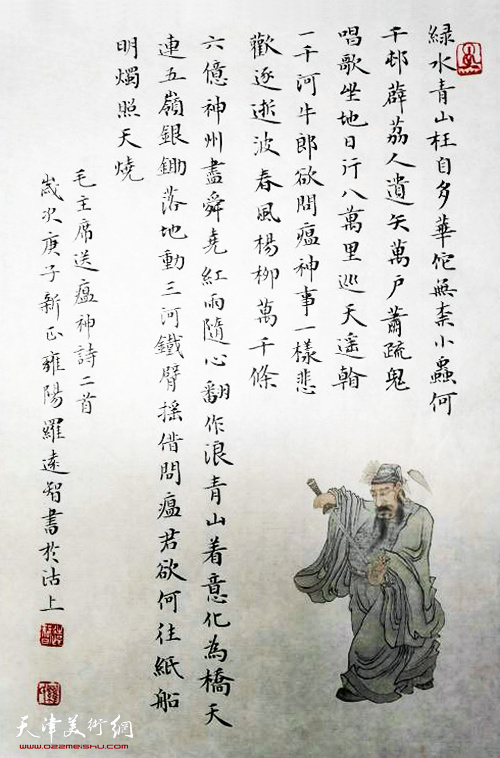 緑水青山枉自多華佗無柰小蟲何
千邨薜荔人遺矢萬户蕭疏鬼
唱歌坐地日行八萬里巡天遥看
一千河牛郎欲問瘟神事一樣悲
歡逐逝波春風楊柳萬千條
六億神州盡舜堯紅雨隨心翻作浪青山着意化為橋天
連五嶺銀鋤落地動三河鐵臂摇借問瘟君欲何往紙船
明燭照天燒
毛主席送瘟神詩二首
歲次庚子新正雍陽羅遠智書於沽上
天津美術網
www.022meishu.com